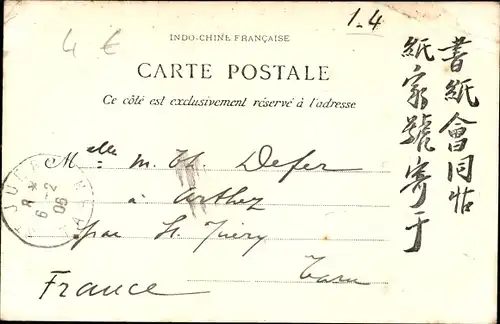 4 €
1-4
INDO-CHINE FRANÇAISE
CARTE POSTALE
Ce côté est exclusivement réservé à l'adresse
Melle M. Th Defer
à Arthez
par St Juéry
Tarn
France
書紙會同帖
紙家號寄于
6 -2
06